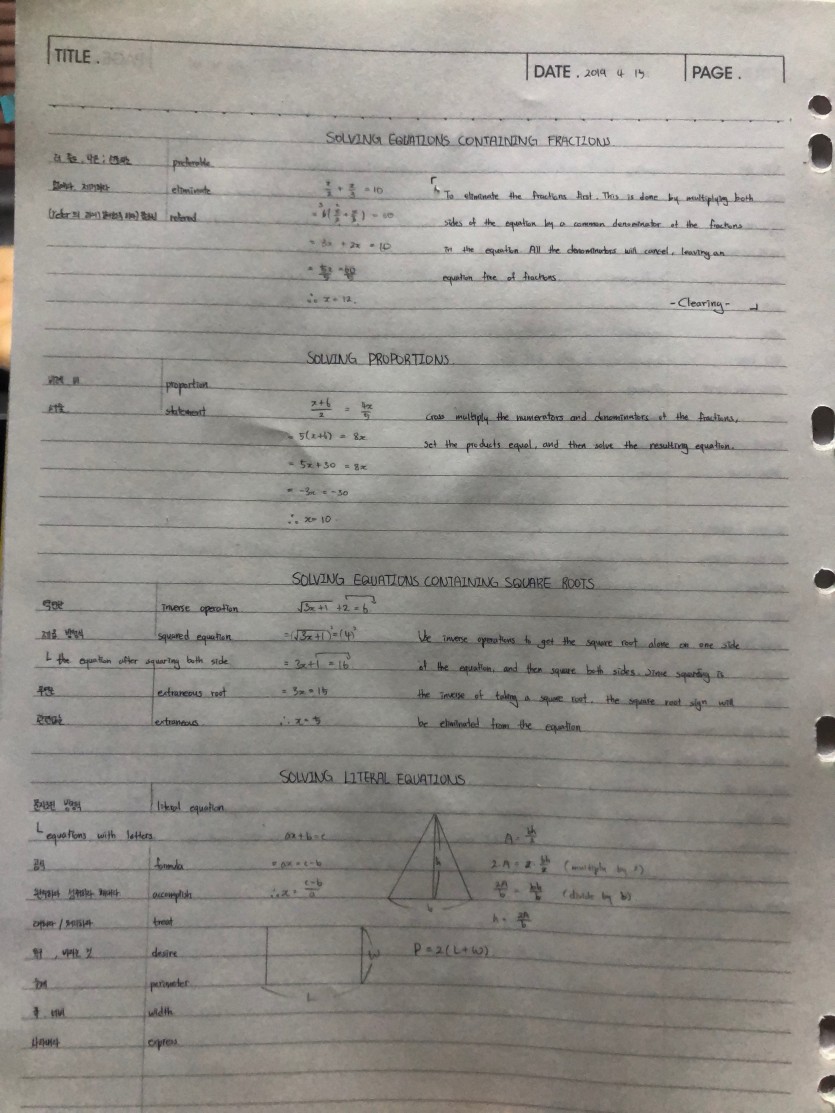 TITLE.
DATE. 2019 4 15
PAGE.
SOLVING EQUATIONS CONTAINING FRACTIONS
preferable
eliminate
x/2 + x/3 = 10
To eliminate the fractions first. This is done by multiplying both
referred
sides of the equation by a common denominator of the fractions
= 3x + 2x = 10
in the equation All the denominators will cancel, leaving an
equation free of fractions.
∴ x = 12.
-Clearing-
SOLVING PROPORTIONS
proportion
statement
x+6/2 = 4x/5
Cross multiply the numerators and denominators of the fractions,
= 5(x+6) = 8x
Set the products equal, and then solve the resulting equation.
= 5x+30 = 8x
= -3x = -30
∴ x= 10
SOLVING EQUATIONS CONTAINING SQUARE ROOTS
inverse operation
√3x+1 +2 = 6
제곱 방정식
squared equation
=(√3x+1)²=(4)²
Use inverse operations to get the square root alone on one side
the equation after squaring both side
= 3x+1 = 16
of the equation, and then square both sides. Since squaring is
무연근
extraneous root
= 3x = 15
the inverse of taking a square root, the square root sign will
extraneous
∴ x = 5
be eliminated from the equation
SOLVING LITERAL EQUATIONS
literal equation
equations with letters
ax+b=c
A = bh/2
공식
formula
= ax = c-b
h
2·A = 2·bh/2 (multiply by 2)
accomplish
∴ x = c-b/a
2A/b = bh/b (divide by b)
b
treat
h = 2A/b
desire
W
P=2(L+W)
둘레
perimeter
L
폭, 너비
width
나타내다
express